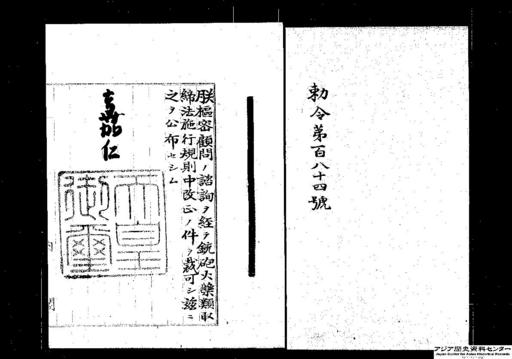 勅令第百八十四號
朕樞密顧問ノ諮詢ヲ経テ銃砲火藥類取
締法施行規則中改正ノ件ヲ裁可シ茲ニ
之ヲ公布セシム
嘉仁
天皇御璽
アジア歴史資料センター
Japan Center for Asian Historical Records